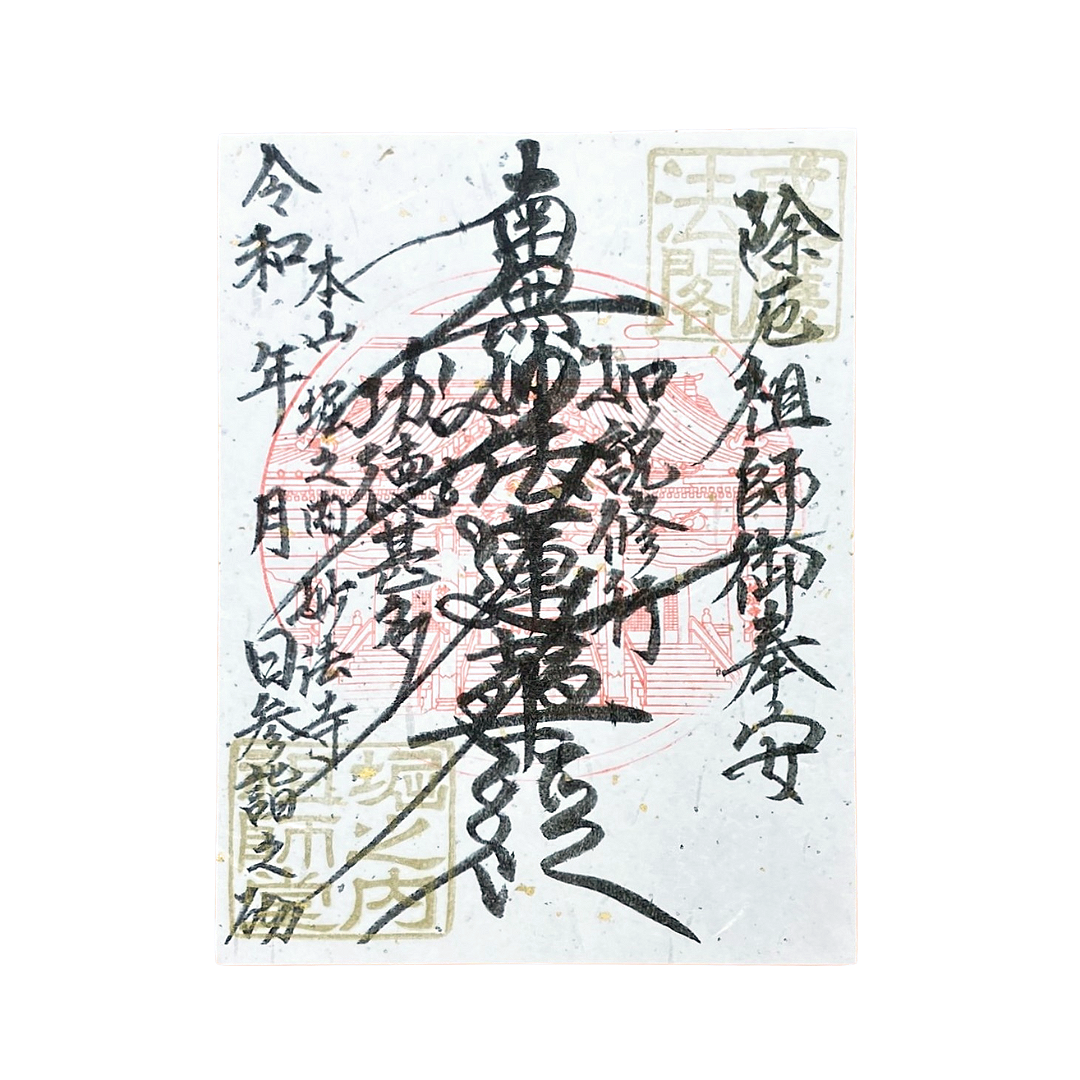 除厄祖師御奉安
法閣
如説修行
南無妙法蓮華経
功徳甚多
本山 堀之内 妙法寺
令和 年 月 日参詣之砌
堀之内
祖師堂